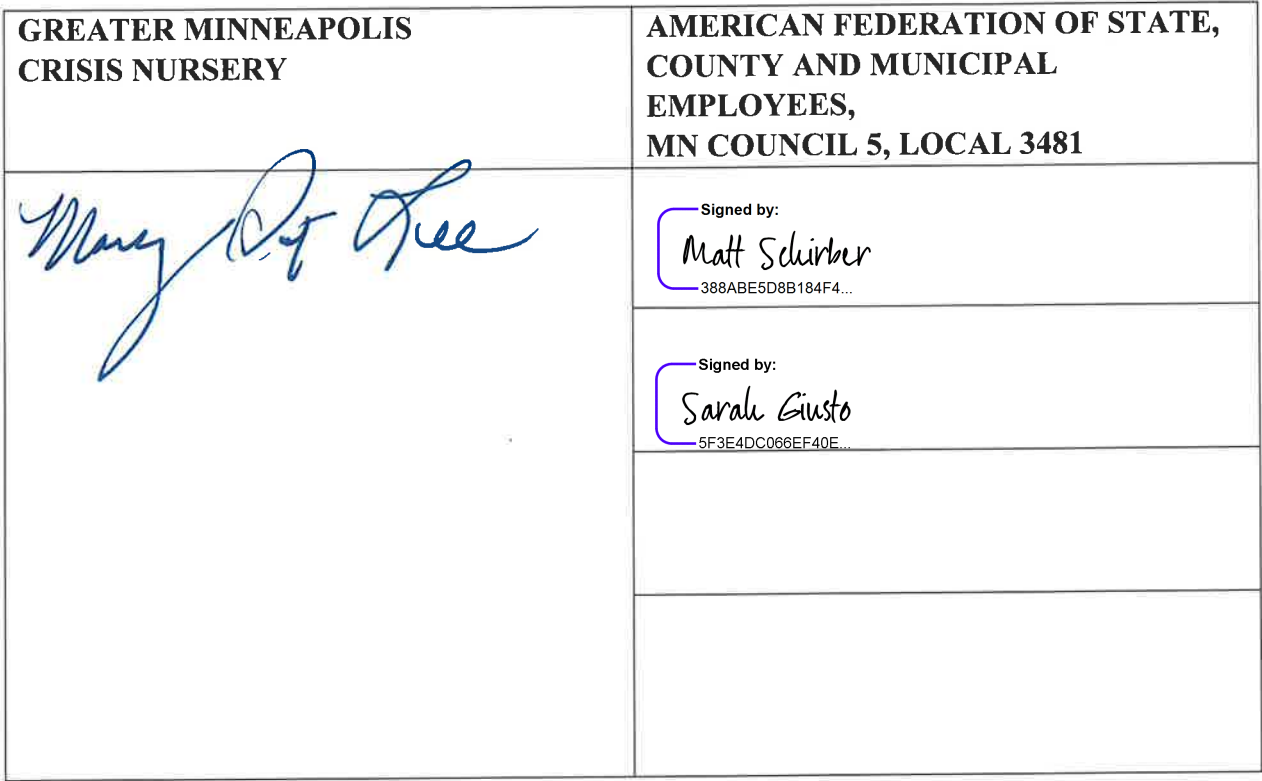 GREATER MINNEAPOLIS
CRISIS NURSERY
AMERICAN FEDERATION OF STATE,
COUNTY AND MUNICIPAL
EMPLOYEES,
MN COUNCIL 5, LOCAL 3481
Mary Pat Lee
Signed by:
Matt Schirber
388ABE5D8B184F4...
Signed by:
Sarah Giusto
5F3E4DC066EF40E...